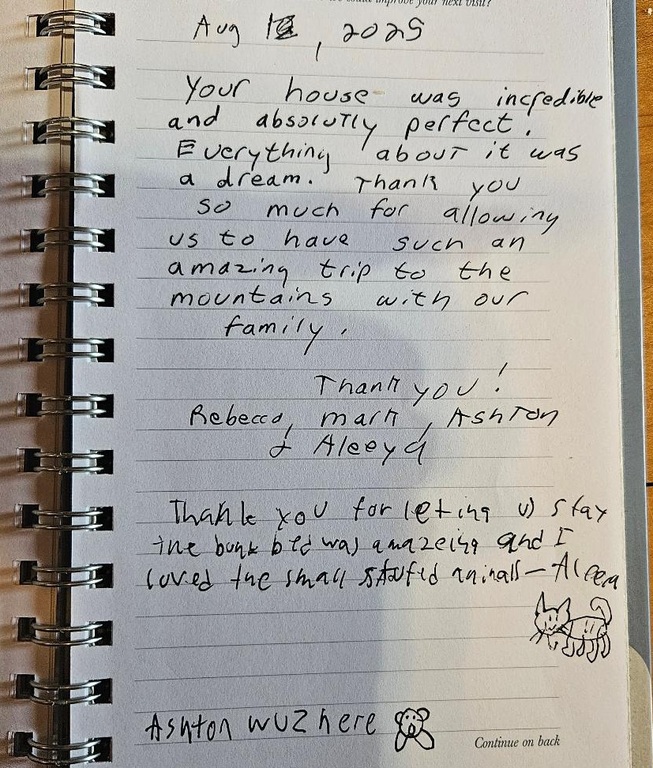 could improve your next visit?
Aug 1 , 2025
Your house was incredible
and absolutly perfect.
Everything about it was
a dream. Thank you
so much for allowing
us to have such an
amazing trip to the
mountains with our
family.
Thank you!
Rebecca, mark, Ashton
& Aleeya
Thank you for leting us stay
the bunk bed was amazeing and I
loved the small stufed aninals—Aleeya
Ashton wuz here
Continue on back